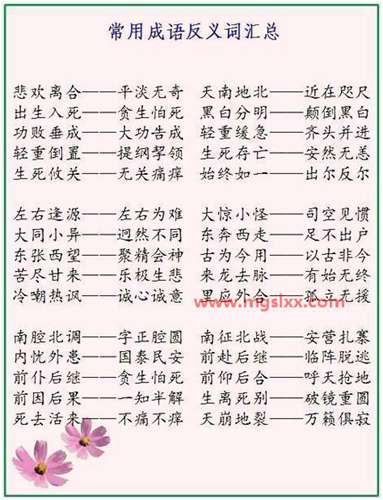 常用成语反义词汇总
悲欢离合——平淡无奇 天南地北——近在咫尺
出生入死——贪生怕死 黑白分明——颠倒黑白
功败垂成——大功告成 轻重缓急——齐头并进
轻重倒置——提纲挈领 生死存亡——安然无恙
生死攸关——无关痛痒 始终如一——出尔反尔
左右逢源——左右为难 大惊小怪——司空见惯
大同小异——迥然不同 东奔西走——足不出户
东张西望——聚精会神 古为今用——以古非今
苦尽甘来——乐极生悲 来龙去脉——有始无终
冷嘲热讽——诚心诚意 里应外合——孤立无援
www.mgslxx.com
南腔北调——字正腔圆 南征北战——安营扎寨
内忧外患——国泰民安 前赴后继——临阵脱逃
前仆后继——贪生怕死 前仰后合——呼天抢地
前因后果——一知半解 生离死别——破镜重圆
死去活来——不痛不痒 天崩地裂——万籁俱寂